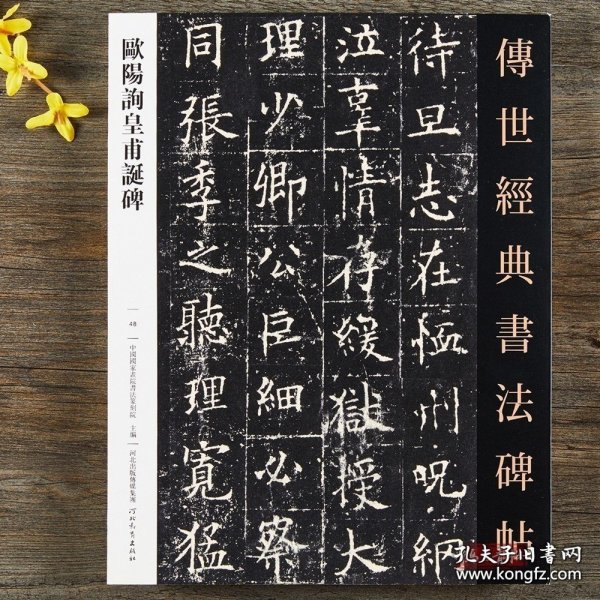 傳世經典書法碑帖
待旦志在恤刑咒網
泣辜情存緩獄授大
理少卿公巨細必察
同張季之聽理寬猛
歐陽詢皇甫誕碑
48
中國國家畫院書法篆刻院 主編
河北出版傳媒集團
河北教育出版社
孔夫子旧书网
www.kongfz.com